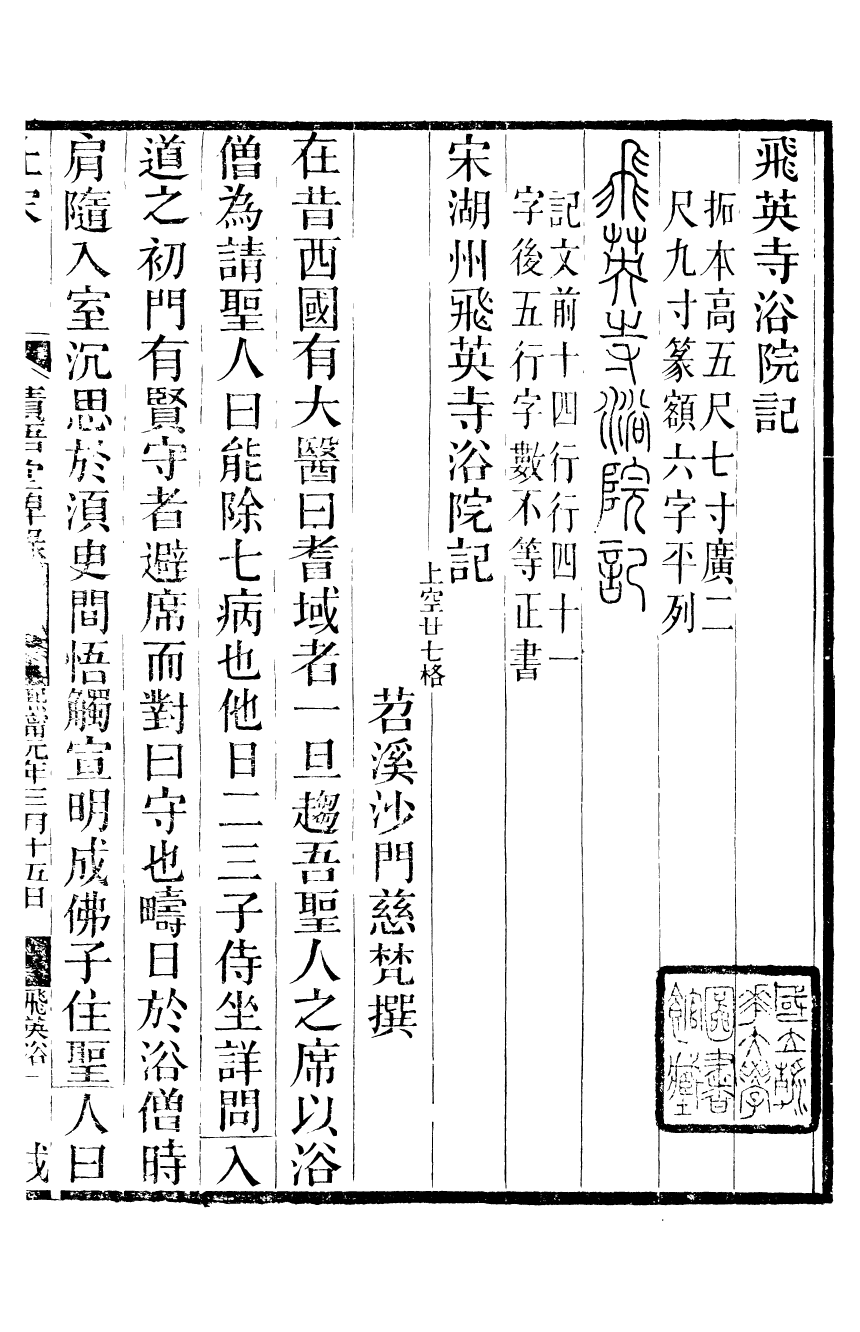 飛英寺浴院記
拓本高五尺七寸廣二
尺九寸篆額六字平列
飛英寺浴院記
記文前十四行行四十一
字後五行字數不等正書
宋湖州飛英寺浴院記
上空廿七格
苕溪沙門慈梵撰
在昔西國有大醫曰耆域者一旦趨吾聖人之席以浴
僧為請聖人曰能除七病也他日二三子侍坐詳問入
道之初門有賢守者避席而對曰守也疇日於浴僧時
肩隨入室沉思於湏史間悟觸宣明成佛子住聖人曰
上宋
熙甯元年三月十五日
飛英浴一
國立
大學
圖書
館藏